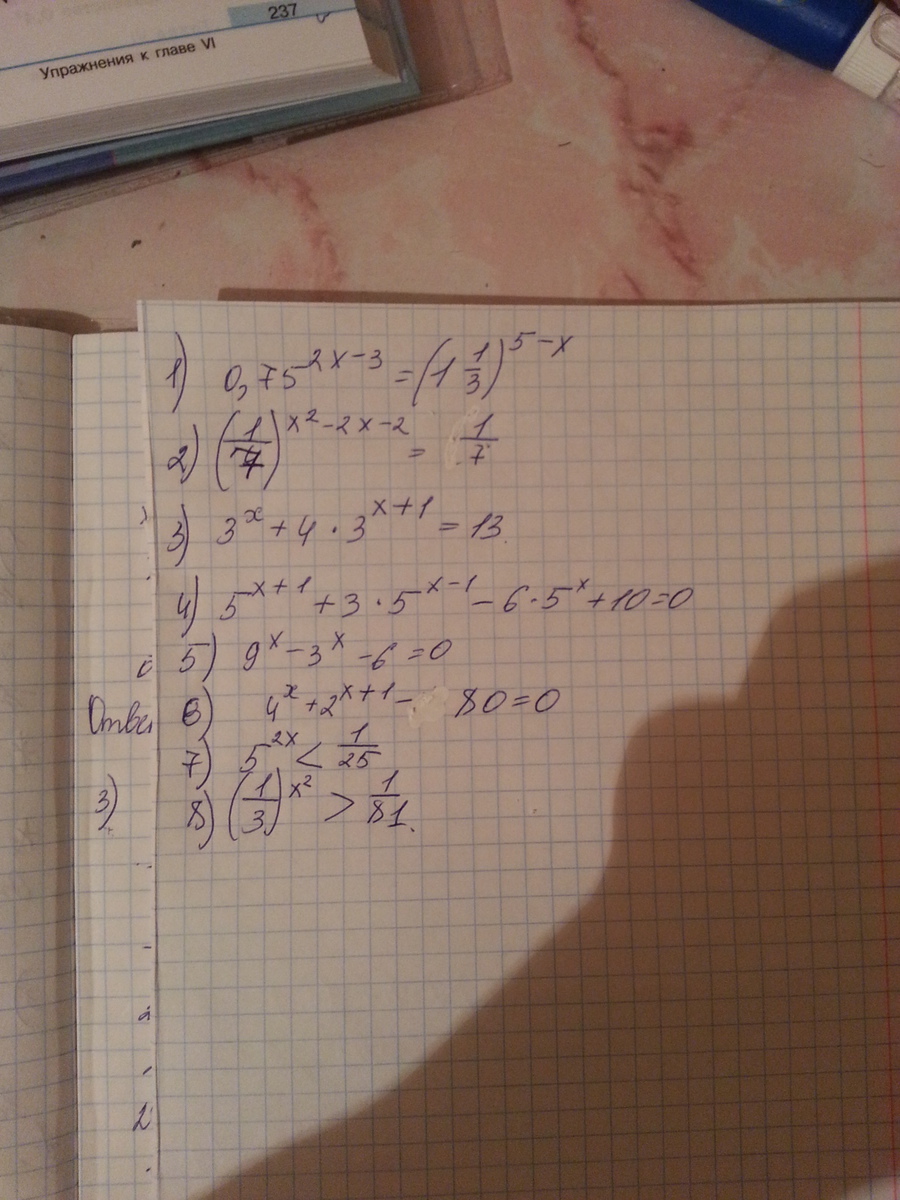 237
Упражнения к главе VI
1) 0,75^{2x-3} = (1 1/3)^{5-x}
2) (1/7)^{x²-2x-2} = 1/7
3) 3^x + 4 · 3^{x+1} = 13.
4) 5^{x+1} + 3 · 5^{x-1} - 6 · 5^x + 10 = 0
5) 9^x - 3^x - 6 = 0
Отве
6) 4^x + 2^{x+1} - 80 = 0
7) 5^{2x} < 1/25
3)
8) (1/3)^{x²} > 1/81.
2